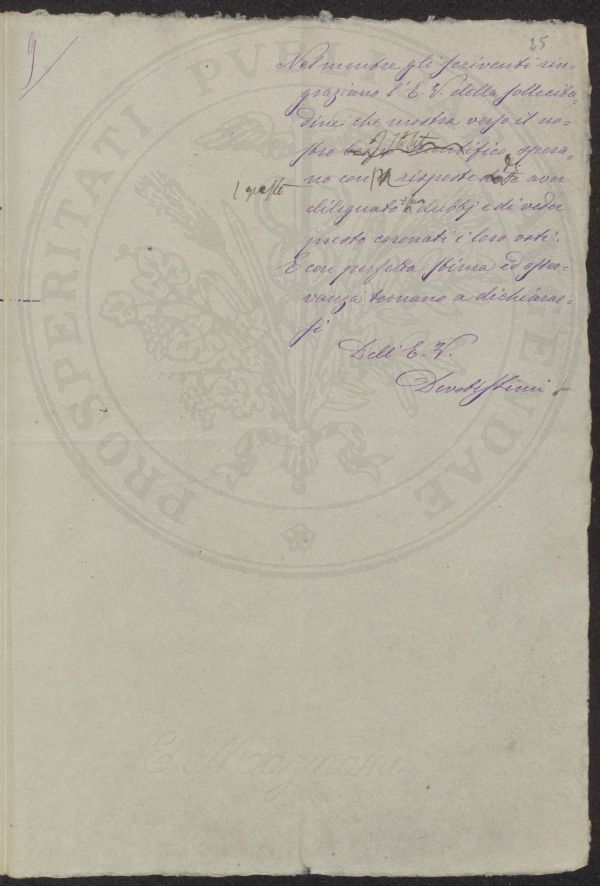 9/
25
Nel mentre gli scriventi rin-
graziano l'E. V. della sollecitu-
dine che mostra verso il no-
stro Istituto spera-
no con risposte di aver
( queste
dileguato i dubbj e di veder
presto coronati i loro voti.
E con perfetta stima ed osser-
vanza tornano a dichiarar-
si
Dell' E. V.
Devotissimi
PROSPERITATI PVBLICAE AVGENDAE
E. Magnani